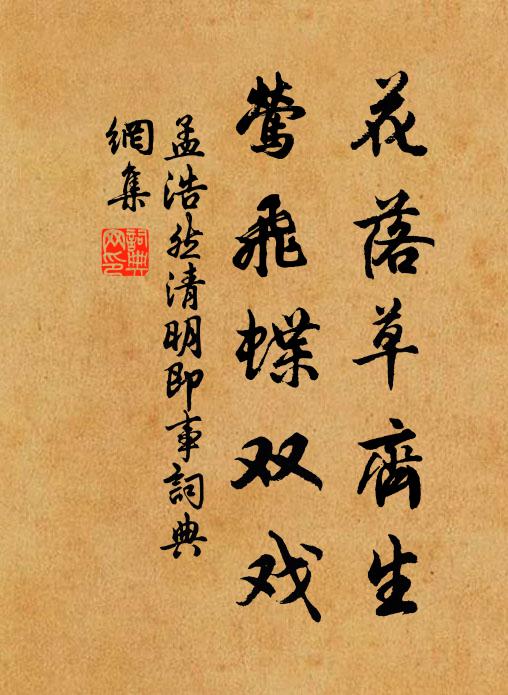 花落草齊生
莺飛蝶双戏
孟浩然清明即事詞典
網集
詞典
网印